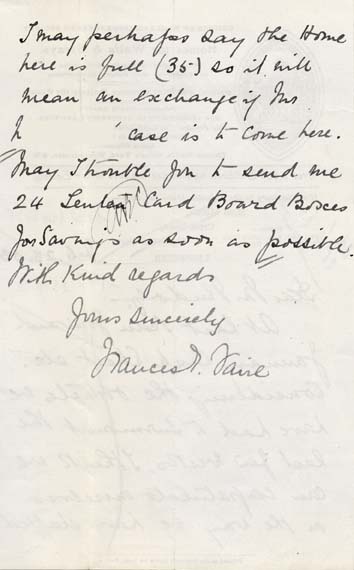 I may perhaps say the Home
here is full (35) so it will
mean an exchange if Mrs
case is to come here.
May I trouble you to send me
24 Lenten Card Board Boxes
for Savings as soon as possible.
With Kind regards
Yours sincerely
Frances E. Faire